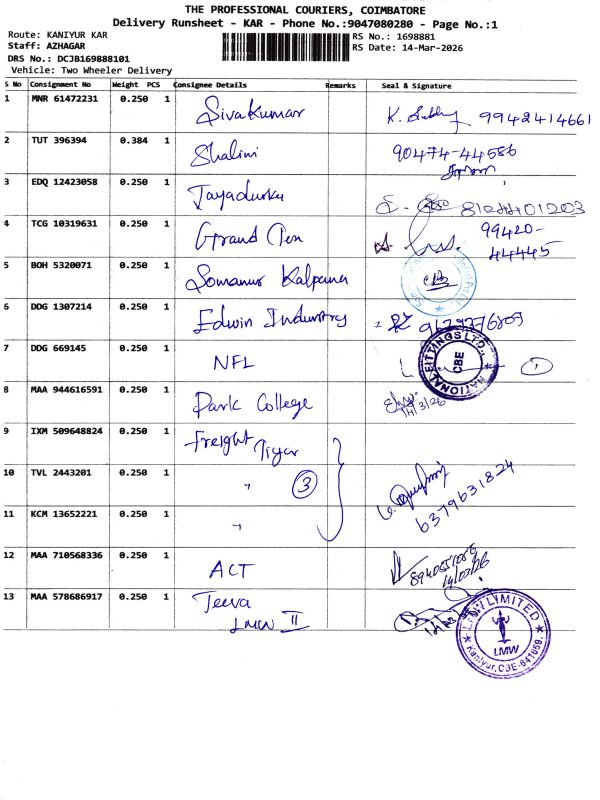 THE PROFESSIONAL COURIERS, COIMBATORE
Delivery Runsheet - KAR - Phone No.:9047080280 - Page No.:1
Route: KANIYUR KAR
RS No.: 1698881
Staff: AZHAGAR
RS Date: 14-Mar-2026
DRS No.: DCJB169888101
Vehicle: Two Wheeler Delivery
S No Consignment No Weight PCS Consignee Details Remarks Seal & Signature
1 MNR 61472231 0.250 1 Sivakumar K. 9942414661
2 TUT 396394 0.384 1 Shalini 90474-44586
3 EDQ 12423058 0.250 1 Jayadurka 8124401203
4 TCG 10319631 0.250 1 Grand Pen 99420-
44445
5 BOH 5320071 0.250 1 Somanur Kalpana
6 DDG 1307214 0.250 1 Edwin Industry
7 DDG 669145 0.250 1 NFL NATIONAL FITTINGS LTD., CBE 1
8 MAA 944616591 0.250 1 Park College 14/3/26
9 IXM 509648824 0.250 1 Freight Tiger
10 TVL 2443201 0.250 1 " 3 6379631824
11 KCM 13652221 0.250 1 "
12 MAA 710568336 0.250 1 ACT 14/03/26
13 MAA 578686917 0.250 1 Jeeva
LMW II
LMW LIMITED
LMW
Kaniyur, CBE-641659.